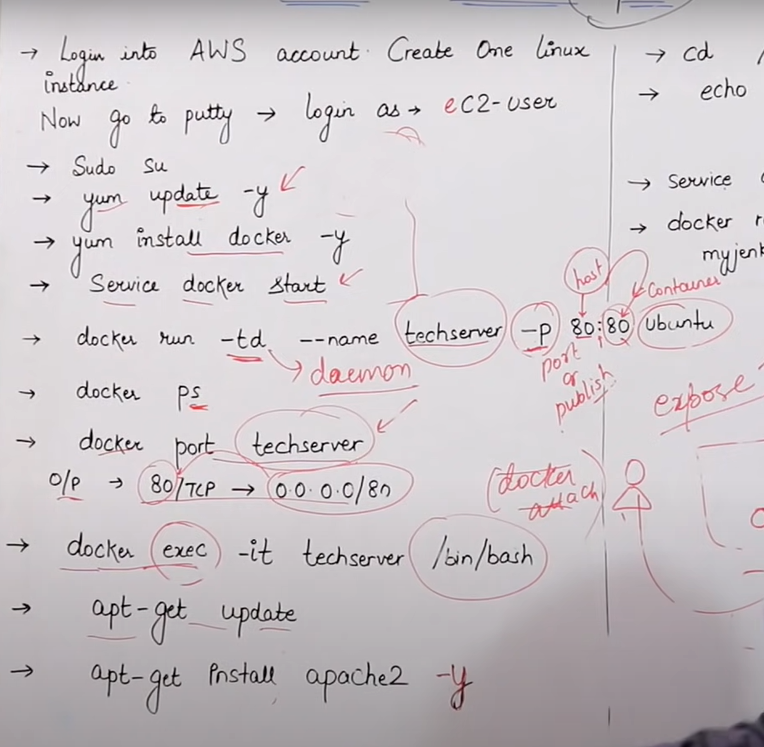 → Login into AWS account. Create One linux
instance.
Now go to putty → login as → eC2-user
→ Sudo su
→ yum update -y
→ yum install docker -y
→ Service docker start
→ docker run -td --name techserver -p 80:80 ubuntu
host
container
daemon
port
or
publish
→ docker ps
→ docker port techserver
O/P → 80/TCP → 0.0.0.0/80
(docker
attach)
→ docker exec -it techserver /bin/bash
→ apt-get update
→ apt-get install apache2 -y
→ cd /
→ echo
→ Service
→ docker r
myjenk
expose